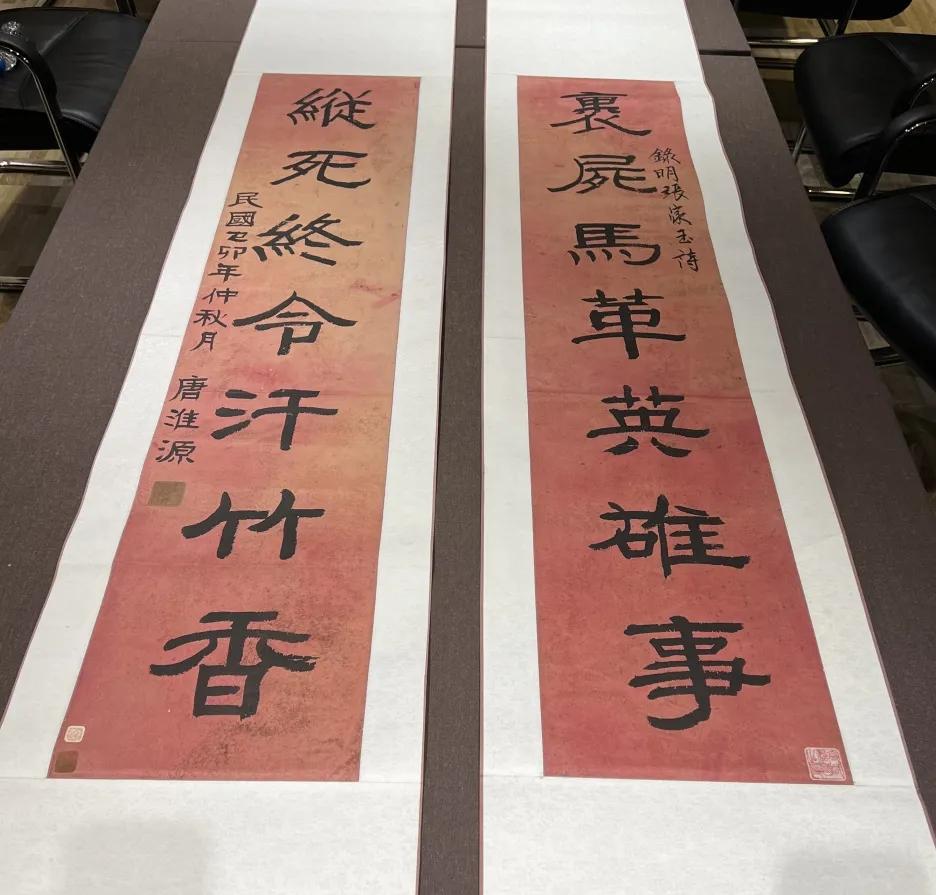 裹屍馬革英雄事
錄明張家玉詩
縱死終令汗竹香
民國己卯年仲秋月 唐淮源